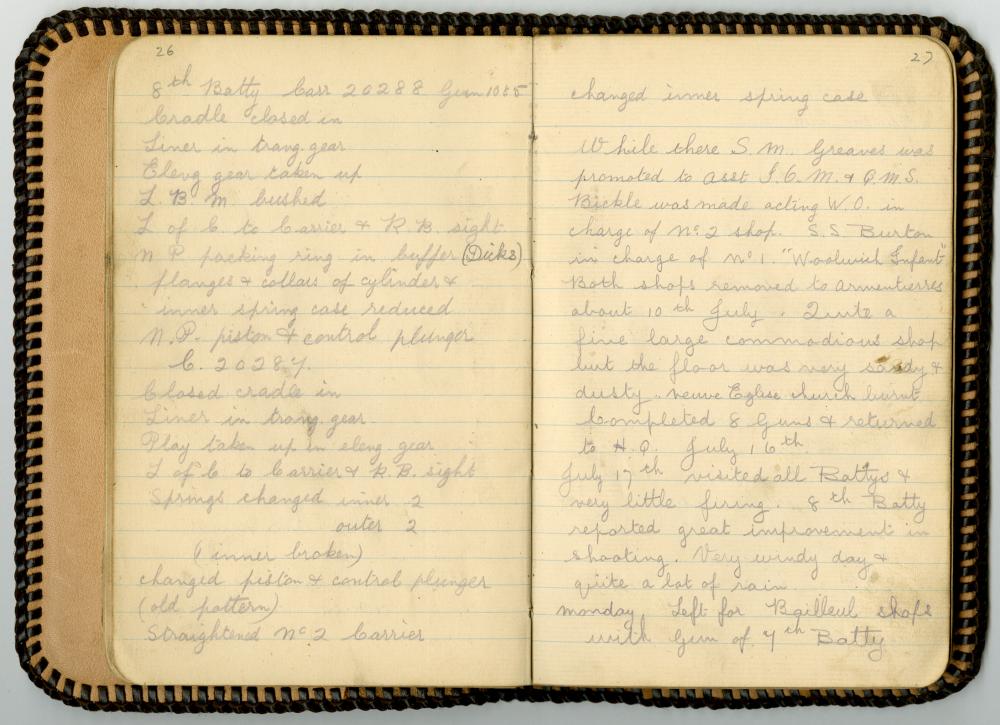 26
8th Batty Carr 20288 Gun 1085
Cradle closed in
Liner in trang. gear
Elevg gear taken up
L. B. M bushed
L of C. to Carrier & R. B. sight
N P. packing ring in buffer (Dicks)
flanges & collars of cylinder &
inner spring case reduced
N. P. piston & control plunger
C. 20287.
Closed cradle in
Liner in trang. gear
Play taken up in elevg gear
L of C to Carrier & R. B. sight
Springs changed inner 2
outer 2
(inner broken)
changed piston & control plunger
(old pattern)
Straightened No 2 Carrier
27
changed inner spring case
While there S. M. Greaves was
promoted to Asst I. O. M. & Q. M. S.
Bickle was made acting W. O. in
charge of No 2 shop. S. S Burton
in charge of No 1. "Woolwich Infant"
Both shops removed to Armentierres
about 10th July. Quite a
fine large commodious shop
but the floor was very sandy &
dusty. neuve Eglise church burnt
Completed 8 Guns & returned
to H. Q. July 16th.
July 17th visited all Battys &
very little firing. 8th Batty
reported great improvement in
shooting. Very windy day &
quite a lot of rain
monday. Left for Bailleul shops
with Gun of 7th Batty